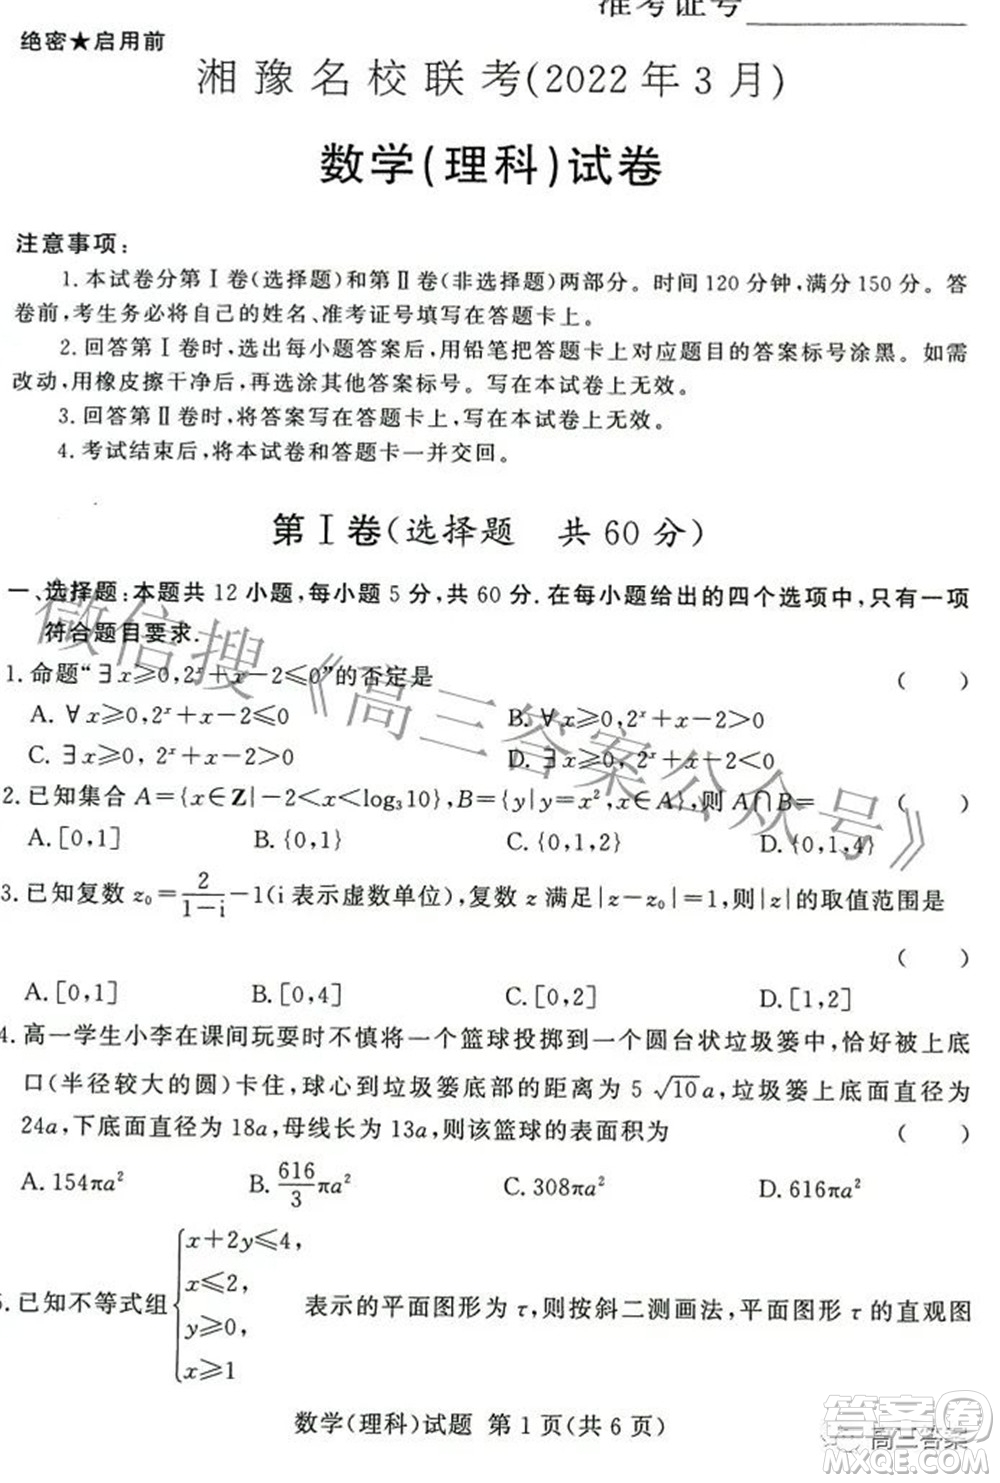 准考证号
绝密★启用前
湘豫名校联考(2022年3月)
数学(理科)试卷
注意事项:
1.本试卷分第Ⅰ卷(选择题)和第Ⅱ卷(非选择题)两部分。时间120分钟,满分150分。答
卷前,考生务必将自己的姓名、准考证号填写在答题卡上。
2.回答第Ⅰ卷时,选出每小题答案后,用铅笔把答题卡上对应题目的答案标号涂黑。如需
改动,用橡皮擦干净后,再选涂其他答案标号。写在本试卷上无效。
3.回答第Ⅱ卷时,将答案写在答题卡上,写在本试卷上无效。
4.考试结束后,将本试卷和答题卡一并交回。
第Ⅰ卷(选择题 共60分)
一、选择题:本题共12小题,每小题5分,共60分.在每小题给出的四个选项中,只有一项
符合题目要求.
1.命题“∃x≥0,2ˣ+x-2≤0”的否定是 ( )
A.∀x≥0,2ˣ+x-2≤0 B.∀x≥0,2ˣ+x-2>0
C.∃x≥0,2ˣ+x-2>0 D.∃x≥0,2ˣ+x-2≥0
2.已知集合A={x∈Z|-2<x<log₃10},B={y|y=x²,x∈A},则A∩B= ( )
A.[0,1] B.{0,1} C.{0,1,2} D.{0,1,4}
3.已知复数z₀=2/(1-i)-1(i表示虚数单位),复数z满足|z-z₀|=1,则|z|的取值范围是
( )
A.[0,1] B.[0,4] C.[0,2] D.[1,2]
4.高一学生小李在课间玩耍时不慎将一个篮球投掷到一个圆台状垃圾篓中,恰好被上底
口(半径较大的圆)卡住,球心到垃圾篓底部的距离为5√10a,垃圾篓上底面直径为
24a,下底面直径为18a,母线长为13a,则该篮球的表面积为 ( )
A.154πa² B.616/3πa² C.308πa² D.616πa²
5.已知不等式组{x+2y≤4, x≤2, y≥0, x≥1 表示的平面图形为τ,则按斜二测画法,平面图形τ的直观图
数学(理科)试题 第1页(共6页)
微信搜《高三答案公众号》
答案圈
MXQE.COM
高三答案